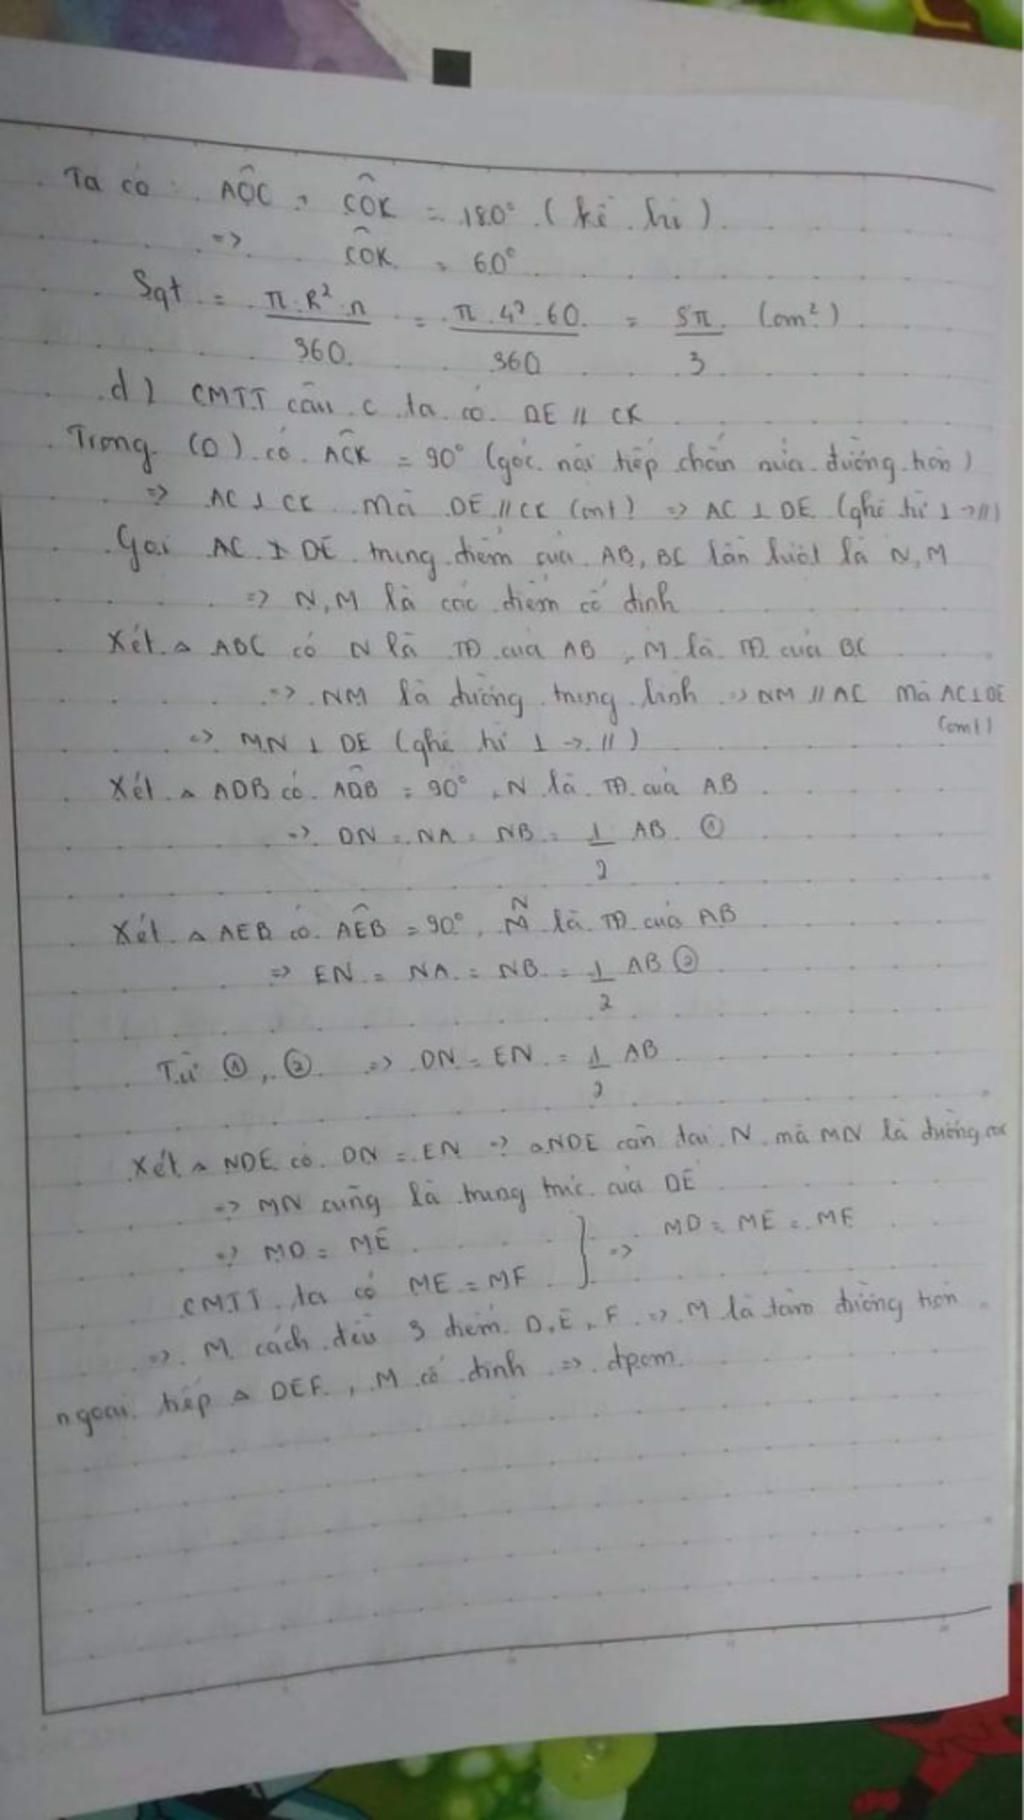 Ta có: AÔC + CÔK = 180° (kề bù)
=> CÔK = 60°
Sqt = π.R².n / 360 = π.4².60 / 360 = 8π / 3 (cm²)
d) CMTT câu c ta có DE // CK
Trong (O) có AĈK = 90° (góc nội tiếp chắn nửa đường tròn)
=> AC ⊥ CK mà DE // CK (cmt) => AC ⊥ DE (qhệ từ ⊥ -> //)
Gọi AC ⊥ DE trung điểm của AB, BC lần lượt là N, M
=> N, M là các điểm cố định
Xét △ ABC có N là TĐ của AB, M là TĐ của BC
=> NM là đường trung bình => NM // AC mà AC ⊥ DE (cmt)
=> MN ⊥ DE (qhệ từ ⊥ -> //)
Xét △ ADB có AD̂B = 90°, N là TĐ của AB
=> DN = NA = NB = 1/2 AB ①
Xét △ AEB có AÊB = 90°, N là TĐ của AB
=> EN = NA = NB = 1/2 AB ②
Từ ①, ② => DN = EN = 1/2 AB
Xét △ NDE có DN = EN => △NDE cân tại N mà MN là đường cao
=> MN cũng là trung trực của DE
=> MD = ME
CMTT ta có ME = MF } => MD = ME = MF
=> M cách đều 3 điểm D, E, F => M là tâm đường tròn
ngoại tiếp △ DEF, M cố định => đpcm